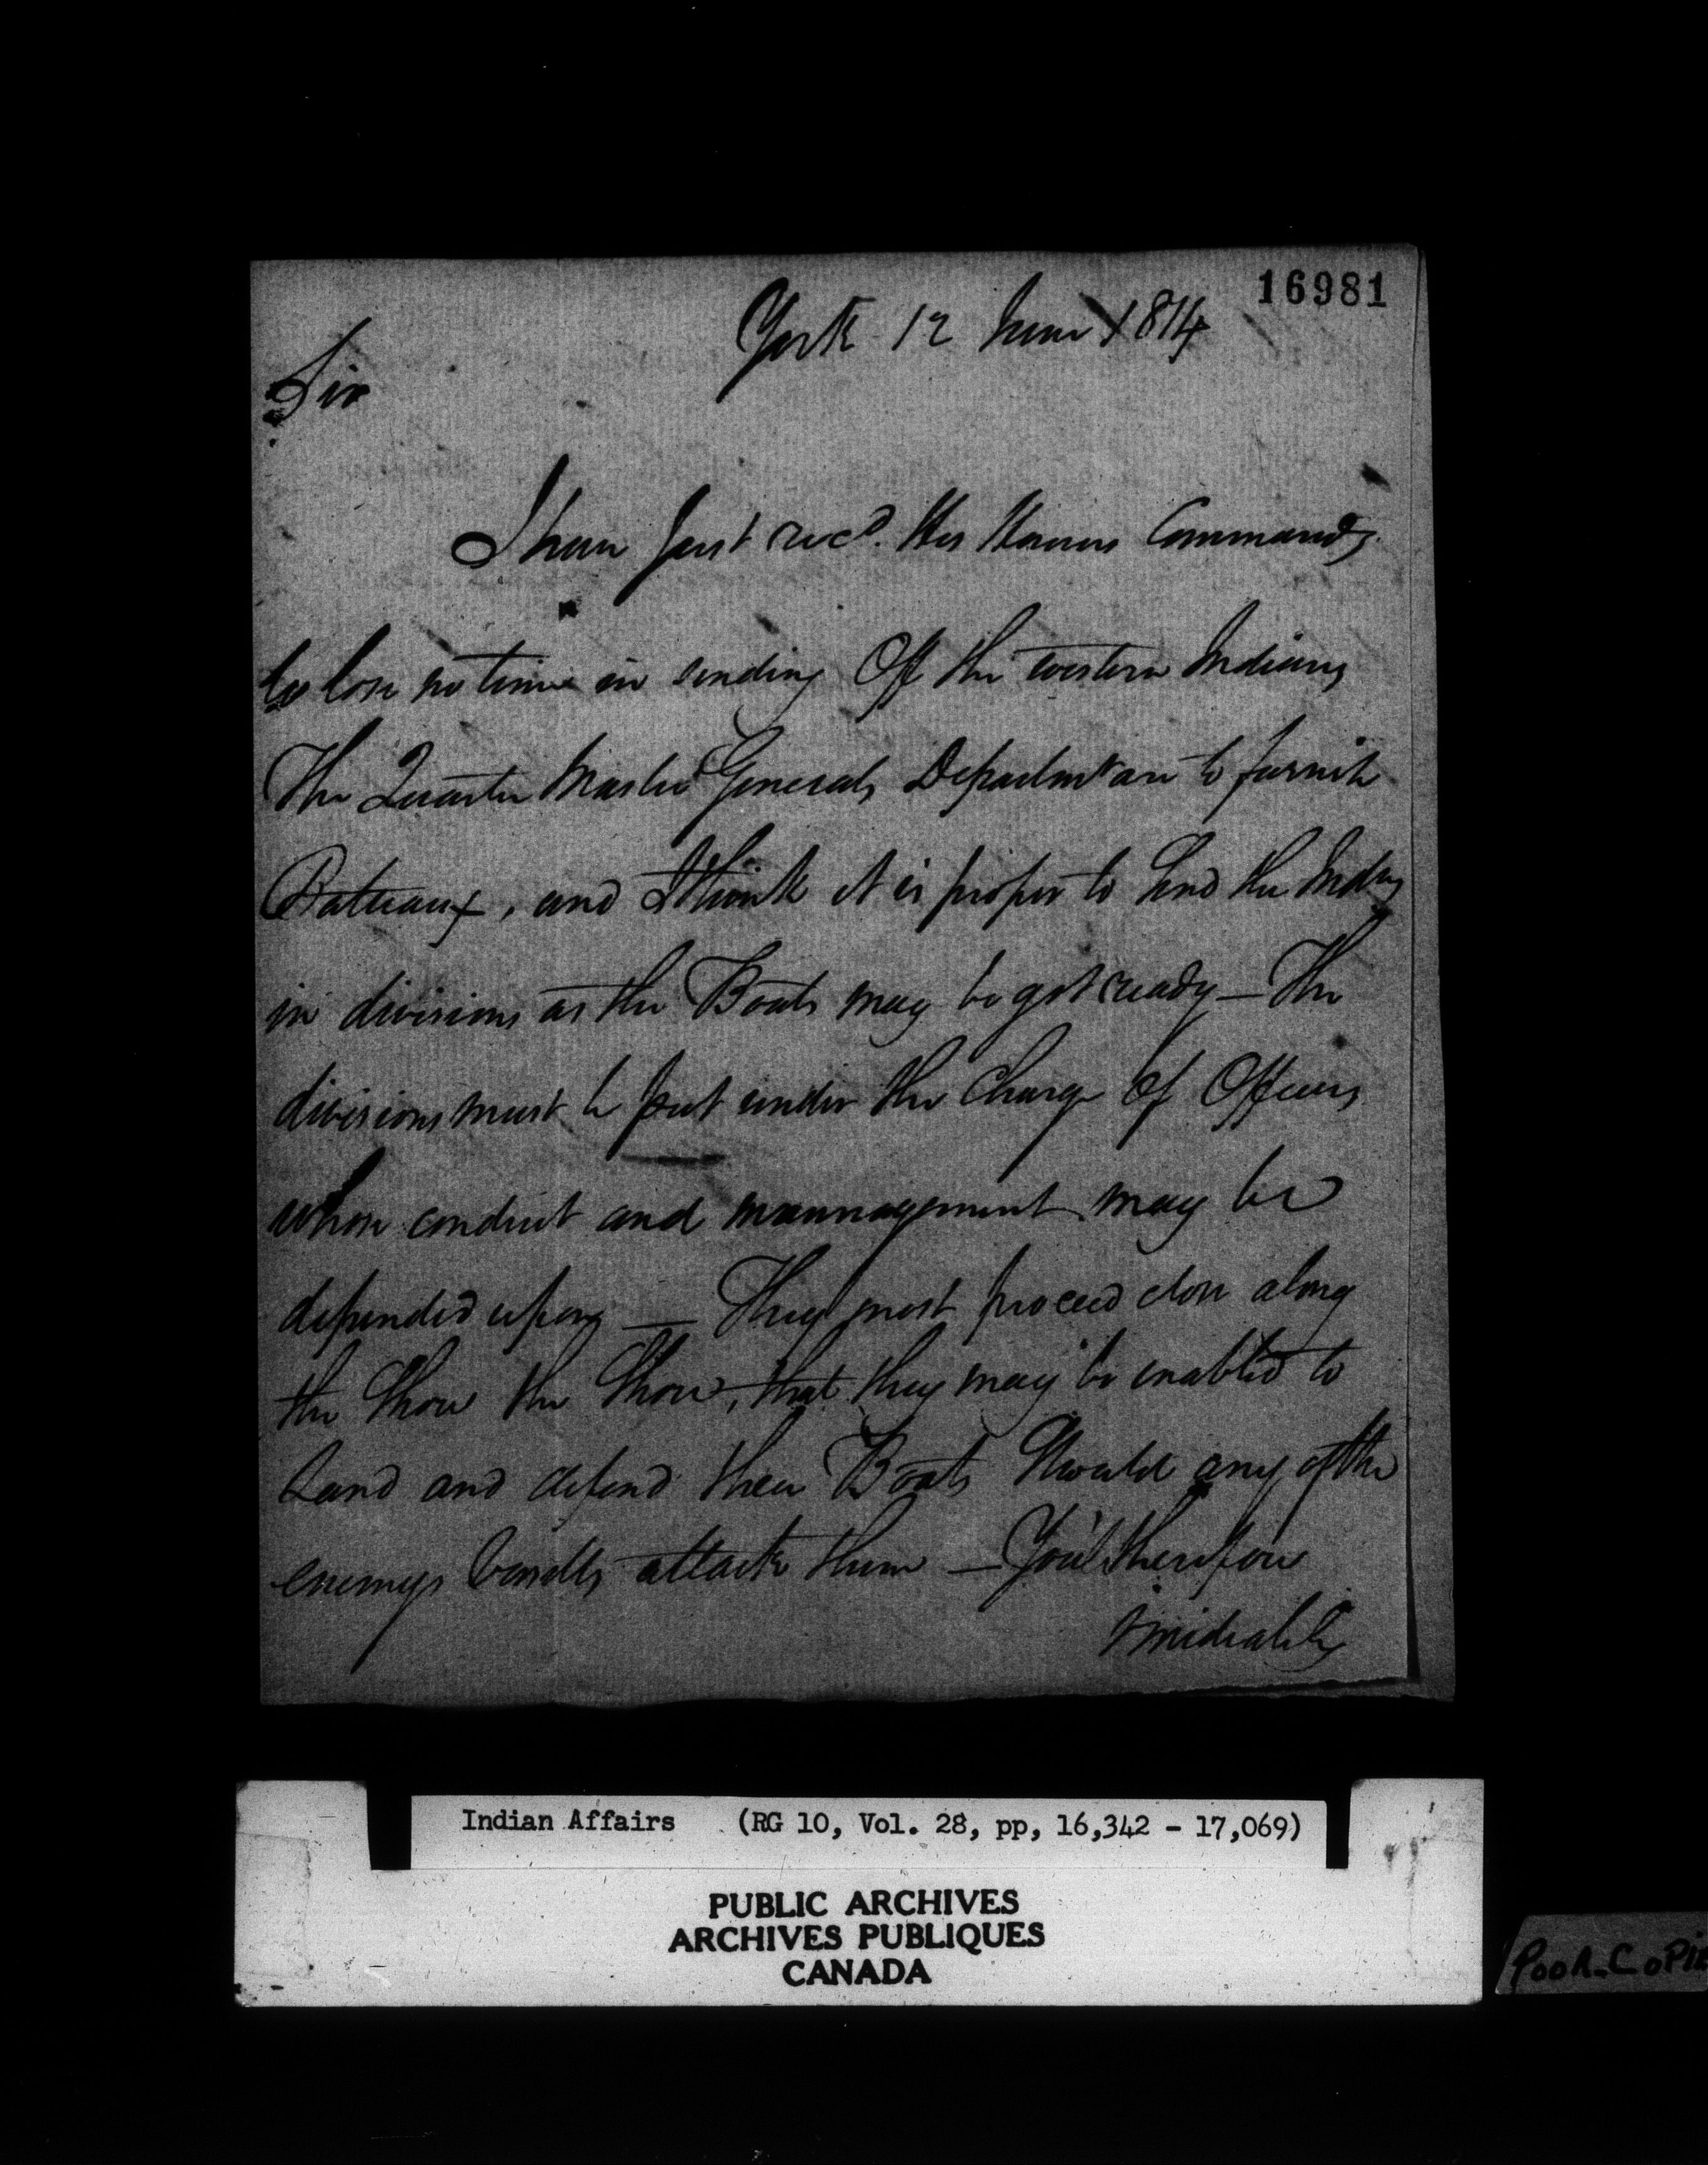 16981
York 12 June 1814
Sir
I have just recd. His Honors Commands
to lose no time in sending Off the western Indians
The Quarter Master Generals Departmt are to furnish
Batteaux, and I think it is proper to send the Indns
in divisions as the Boats may be got ready — The
divisions must be put under the Charge of Officers
whose conduct and mannagement may be
depended upon — They must proceed close along
the Shore the Shore, that they may be enabled to
Land and defend their Boats Should any of the
enemys Vessells attack them — You'l therefore
imidiately
Indian Affairs (RG 10, Vol. 28, pp, 16,342 - 17,069)
PUBLIC ARCHIVES
ARCHIVES PUBLIQUES
CANADA
POOR COPIE